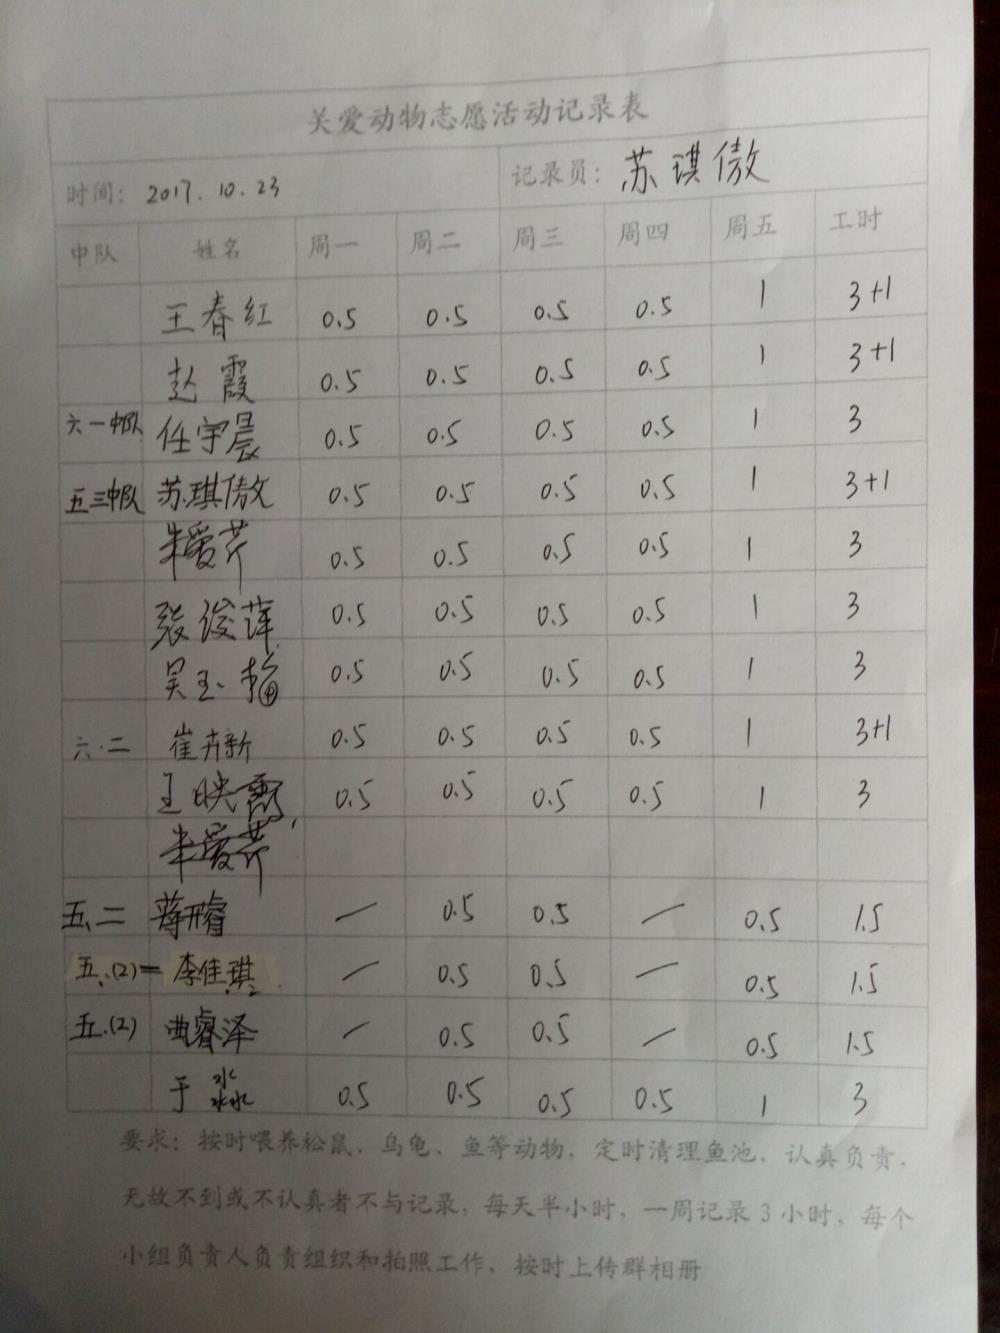 关爱动物志愿活动记录表
时间：2017.10.23 记录员：苏琪傲
中队 姓名 周一 周二 周三 周四 周五 工时
王春红 0.5 0.5 0.5 0.5 1 3+1
赵霞 0.5 0.5 0.5 0.5 1 3+1
六一中队 任宇晨 0.5 0.5 0.5 0.5 1 3
五三中队 苏琪傲 0.5 0.5 0.5 0.5 1 3+1
朱爱芹 0.5 0.5 0.5 0.5 1 3
张俊萍 0.5 0.5 0.5 0.5 1 3
吴玉 0.5 0.5 0.5 0.5 1 3
六·二 崔卉新 0.5 0.5 0.5 0.5 1 3+1
王映霞 0.5 0.5 0.5 0.5 1 3
朱爱芹
五、二 蒋开睿 — 0.5 0.5 — 0.5 1.5
五.(2) 李佳琪 — 0.5 0.5 — 0.5 1.5
五.(2) 曲睿泽 — 0.5 0.5 — 0.5 1.5
于淼 0.5 0.5 0.5 0.5 1 3
要求：按时喂养松鼠、乌龟、鱼等动物，定时清理鱼池，认真负责，
无故不到或不认真者不与记录，每天半小时，一周记录3小时，每个
小组负责人负责组织和拍照工作，按时上传群相册